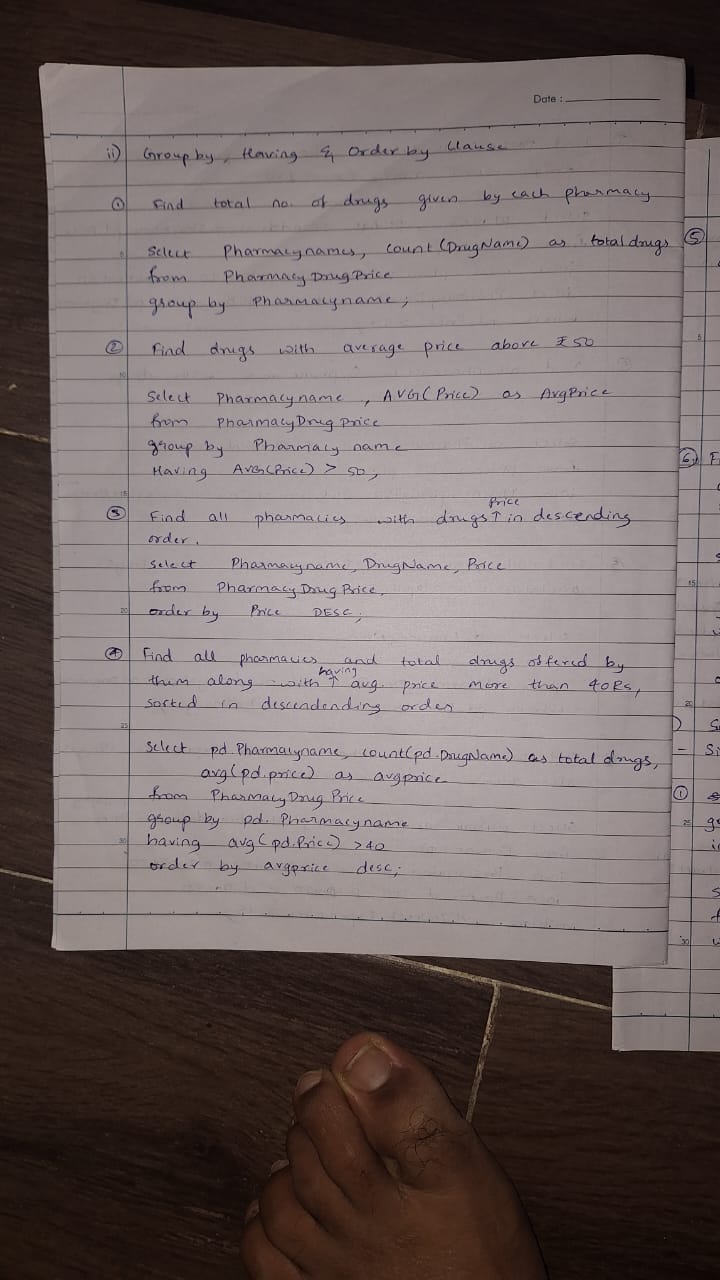 Date :
ii) Group by, Having & Order by Clause
① Find total no. of drugs given by each pharmacy
Select Pharmacynames, count(DrugName) as total drugs
from Pharmacy Drug Price
group by Pharmacyname;
② Find drugs with average price above ₹50
10
Select Pharmacyname, AVG(Price) as AvgPrice
from PharmacyDrug Price
group by Pharmacy name
Having AVG(Price) > 50;
15
③ Find all pharmacies with drugs ↑ Price in descending
order.
Select Pharmacyname, DrugName, Price
from Pharmacy Drug Price,
20 order by Price DESC;
④ Find all pharmacies and total drugs offered by
them along with ↑ having avg. price more than 40Rs,
sorted in descendending order
25
Select pd.Pharmacyname, count(pd.DrugName) as total drugs,
avg(pd.price) as avgprice
from Pharmacy Drug Price
group by pd. Pharmacyname
30 having avg(pd.Price) >40
order by avgprice desc;
⑤
5
⑥
15
20
①
25
30